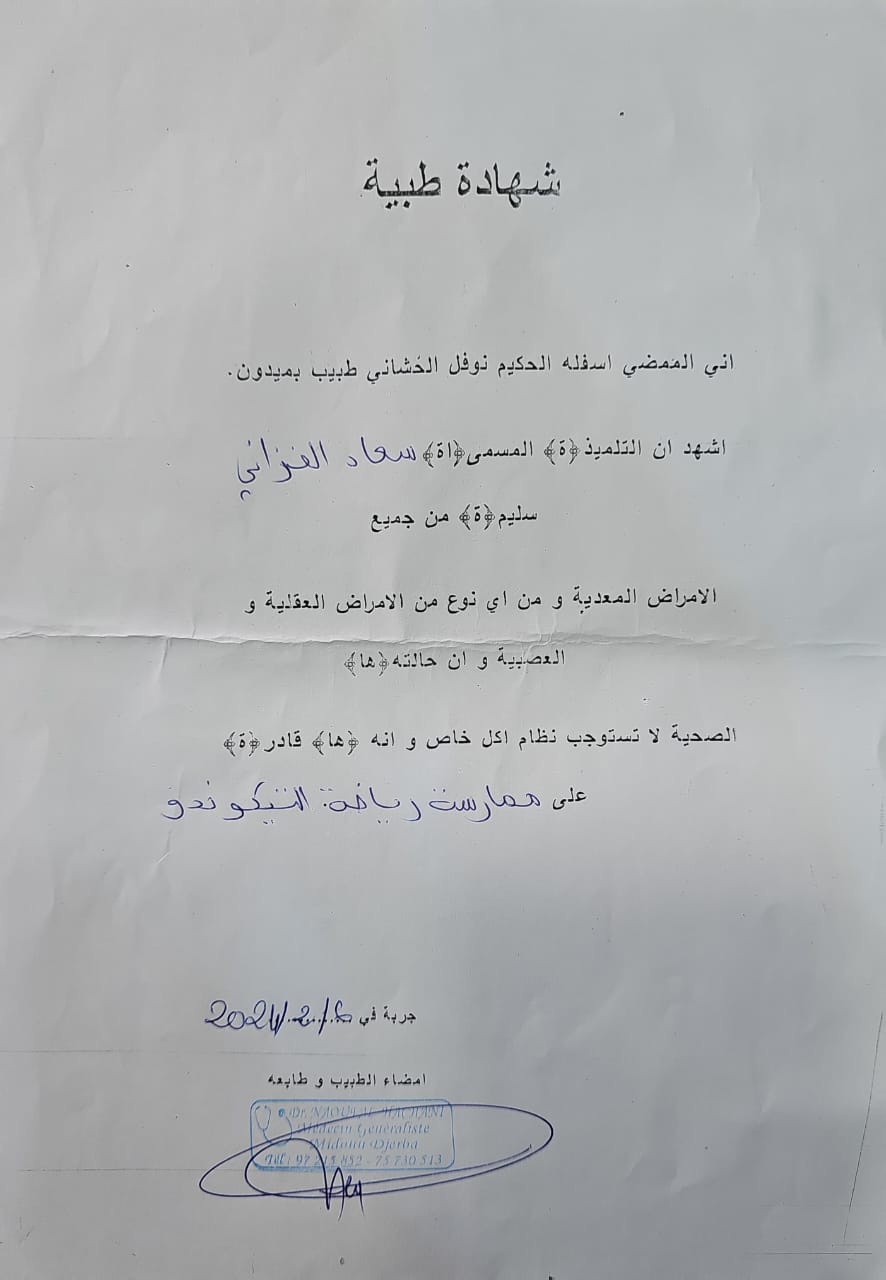 شهادة طبية
اني الممضي اسفله الحكيم نوفل الخشاني طبيب بميدون.
اشهد ان التلميذ﴿ة﴾ المسمى﴿اة﴾ سعاد الغزاني
سليم﴿ة﴾ من جميع
الامراض المعدية و من اي نوع من الامراض العقلية و
العصبية و ان حالته﴿ها﴾
الصحية لا تستوجب نظام اكل خاص و انه ﴿ها﴾ قادر﴿ة﴾
على ممارسة رياضة التيكوندو
جربة في
امضاء الطبيب و طابعه
Dr. NAOUFAL HACHANI
Médecin Généraliste
Midoun Djerba
Tél : 97 215 852 - 75 730 513